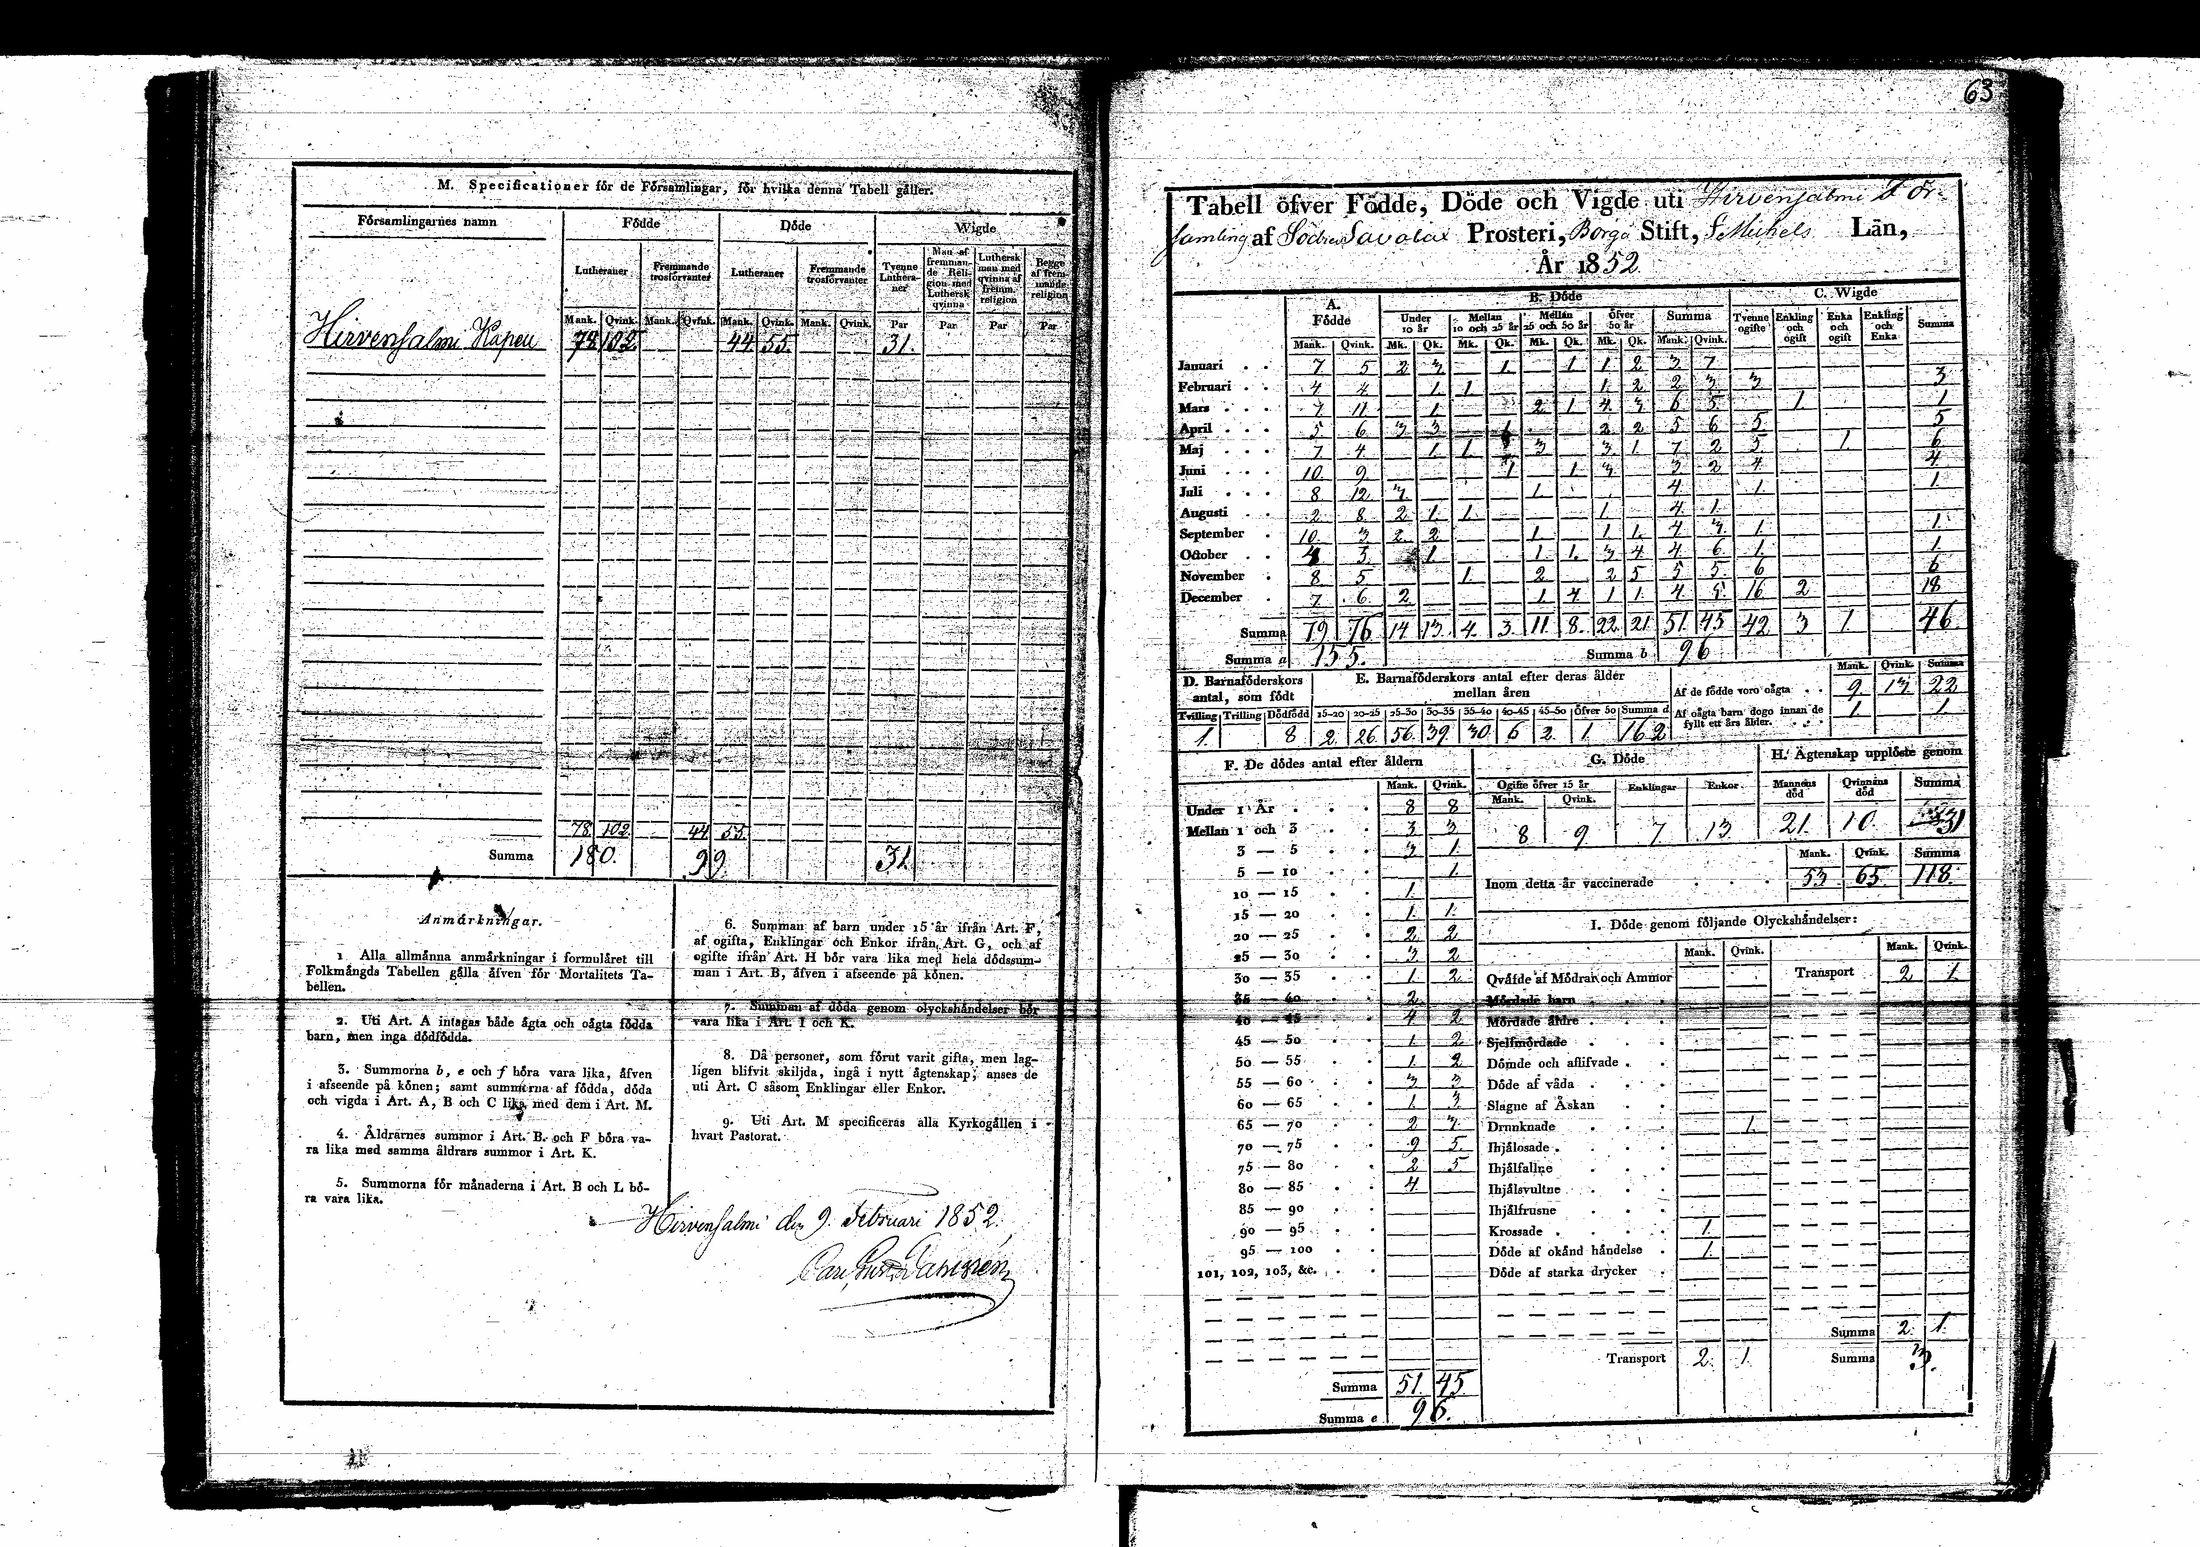 M. Specificationer för de Församlingar, för hvilka denna Tabell gäller.
Församlingarnes namn Födde Döde Wigde
Lutheraner Fremmande trosförvanter Lutheraner Fremmande trosförvanter Tvenne Lutheraner Man af fremmande Religion med Luthersk qvinna Luthersk man med qvinna af fremm. religion Begge af fremmande religion
Mank. Qvink. Mank. Qvink. Mank. Qvink. Mank. Qvink. Par Par Par Par
Hirvensalmi Kapell 78 102 44 55 31.
78 102 44 55
Summa 180. 99 31
Anmärkningar.
1. Alla allmänna anmärkningar i formuläret till
Folkmängds Tabellen gälla äfven för Mortalitets Ta-
bellen.
2. Uti Art. A intagas både ägta och oägta födda
barn, men inga dödfödda.
3. Summorna b, e och f böra vara lika, äfven
i afseende på könen; samt summorna af födda, döda
och vigda i Art. A, B och C lika med dem i Art. M.
4. Åldrarnes summor i Art. B. och F böra va-
ra lika med samma åldrars summor i Art. K.
5. Summorna för månaderna i Art. B och L bö-
ra vara lika.
6. Summan af barn under 15 år ifrån Art. F,
af ogifta, Enklingar och Enkor ifrån Art. G, och af
ogifte ifrån Art. H bör vara lika med hela dödssum-
man i Art. B, äfven i afseende på könen.
7. Summan af döda genom olyckshändelser bör
vara lika i Art. I och K.
8. Då personer, som förut varit gifta, men lag-
ligen blifvit skiljda, ingå i nytt ägtenskap; anses de
uti Art. C såsom Enklingar eller Enkor.
9. Uti Art. M specificeras alla Kyrkogällen i
hvart Pastorat.
Hirvensalmi den 9. Februari 1852.
63
Tabell öfver Födde, Döde och Vigde uti Hirvensalmi För-
samling af Södra Savolax Prosteri, Borgå Stift, St Michels Län,
År 1852
A. Födde B. Döde C. Wigde
Under 10 år Mellan 10 och 25 år Mellan 25 och 50 år Öfver 50 år Summa Tvenne ogifte Enkling och ogift Enka och ogift Enkling och Enka Summa
Mank. Qvink. Mk. Qk. Mk. Qk. Mk. Qk. Mk. Qk. Mank. Qvink.
Januari 7 5 2 3 1 1 1 2 3 7
Februari 4 4 1 1 1 2 2 3 3 3
Mars 7 11 1 2 1 4 3 6 5 1 1
April 5 6 3 3 1 2 2 5 6 5 5
Maj 7 4 1 1 3 3 1 7 2 5 1 6
Juni 10 9 1 1 3 3 2 4 4
Juli 8 12 3 1 4 1 1
Augusti 2 8 2 1 1 1 4 1
September 10 3 2 2 1 1 1 4 3 1 1
October 4 3 1 1 1 3 4 4 6 1 1
November 8 5 1 2 2 5 5 5 6 6
December 7 6 2 1 4 1 1 4 5 16 2 18
Summa 79 76 14 13 4 3 11 8 22 21 51 45 42 3 1 46
Summa a 155. Summa b 96
D. Barnaföderskors antal, som födt
E. Barnaföderskors antal efter deras ålder mellan åren
Mank. Qvink. Summa
Af de födde voro oägta 9 13 22
Af oägta barn dogo innan de fyllt ett års ålder. 1 1
Tvilling Trilling Dödfödd 15-20 20-25 25-30 30-35 35-40 40-45 45-50 Öfver 50 Summa d
1 8 2 26 56 39 30 6 2 1 162
F. De dödes antal efter åldern
Mank. Qvink.
Under 1 År 8 8
Mellan 1 och 3 3 3
3 — 5 3 1
5 — 10 1
10 — 15 1
15 — 20 1 1
20 — 25 2 2
25 — 30 3 2
30 — 35 1 2
35 — 40 2
40 — 45 4 2
45 — 50 1 2
50 — 55 1 2
55 — 60 3 3
60 — 65 1 3
65 — 70 2 3
70 — 75 9 5
75 — 80 2 5
80 — 85 4
85 — 90
90 — 95
95 — 100
101, 102, 103, &c.
Summa 51 45
Summa e 96.
G. Döde
Ogifte öfver 15 år Enklingar Enkor
Mank. Qvink.
8 9 7 13
H. Ägtenskap upplöste genom
Mannens död Qvinnans död Summa
21 10 31
Mank. Qvink. Summa
Inom detta år vaccinerade 53 65 118
I. Döde genom följande Olyckshändelser:
Mank. Qvink. Mank. Qvink.
Qväfde af Mödrar och Ammor Transport 2 1
Mördade barn
Mördade äldre
Sjelfmördade
Dömde och aflifvade
Döde af våda
Slagne af Åskan
Drunknade 1
Ihjälosade
Ihjälfallne
Ihjälsvultne
Ihjälfrusne
Krossade 1
Döde af okänd händelse 1
Döde af starka drycker
Summa 2 1
Transport 2 1 Summa 3.